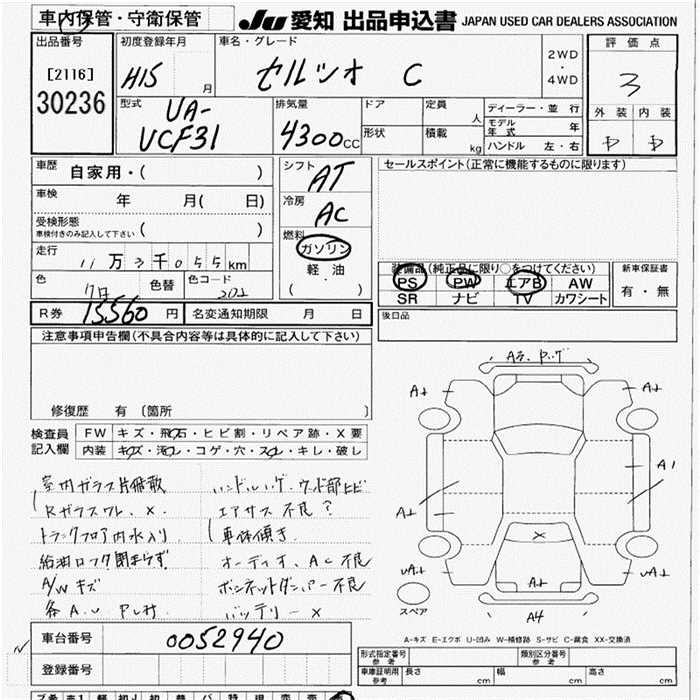 車内保管・守衛保管
JU 愛知 出品申込書 JAPAN USED CAR DEALERS ASSOCIATION
出品番号
[2116]
30236
初度登録年月
H15 月
車名・グレード
セルシオ C
2WD
・
4WD
評価点
3
外装 内装
型式
UA-
UCF31
排気量
4300cc
ドア
形状
定員 人
積載 kg
ディーラー・並行
モデル年式 年
ハンドル 左・右
車歴 自家用・( )
車検 年 月( 日)
受検形態
車検付きのみ記入して下さい ( )
走行 11万3千055km
色 色替 色コード
202
シフト AT
冷房 AC
燃料
ガソリン
軽油
( ・ )
セールスポイント(正常に機能するものに限ります)
装備品(純正品に限り○をつけてください)
PS PW エアB AW
SR ナビ TV カワシート
新車保証書
有・無
R券 15560円 名変通知期限 月 日
後日品
注意事項申告欄(不具合内容等は具体的に記入して下さい)
修復歴 有 [箇所 ]
検査員
記入欄
FW キズ・飛石・ヒビ割・リペア跡・X要
内装 キズ・汚レ・コゲ・穴・スレ・キレ・破レ
室内ガラス片飛散
Rガラスワレ、X
トランクフロア内水入り
給油ロフタ閉まらず
A/Wキズ
各A.U
ハンドル、ウッド部ヒビ
エアサス不良?
車体傾き
オーディオ、AC不良
ボンネットダンパー不良
バッテリーX
A1
A4
スペア
A-キズ E-エクボ U-凹み W-補修跡 S-サビ C-腐食 XX-交換済
車台番号 0052940
登録番号
形式指定番号
参考
類別区分番号
参考
車庫証明用
参考
長さ cm 幅 cm 高さ cm